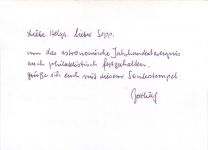 Liebe Helga, lieber Sepp,
um das astronomische Jahrhundertereignis
auch philatelistisch festzuhalten,
grüße ich euch mit diesem Sonderstempel